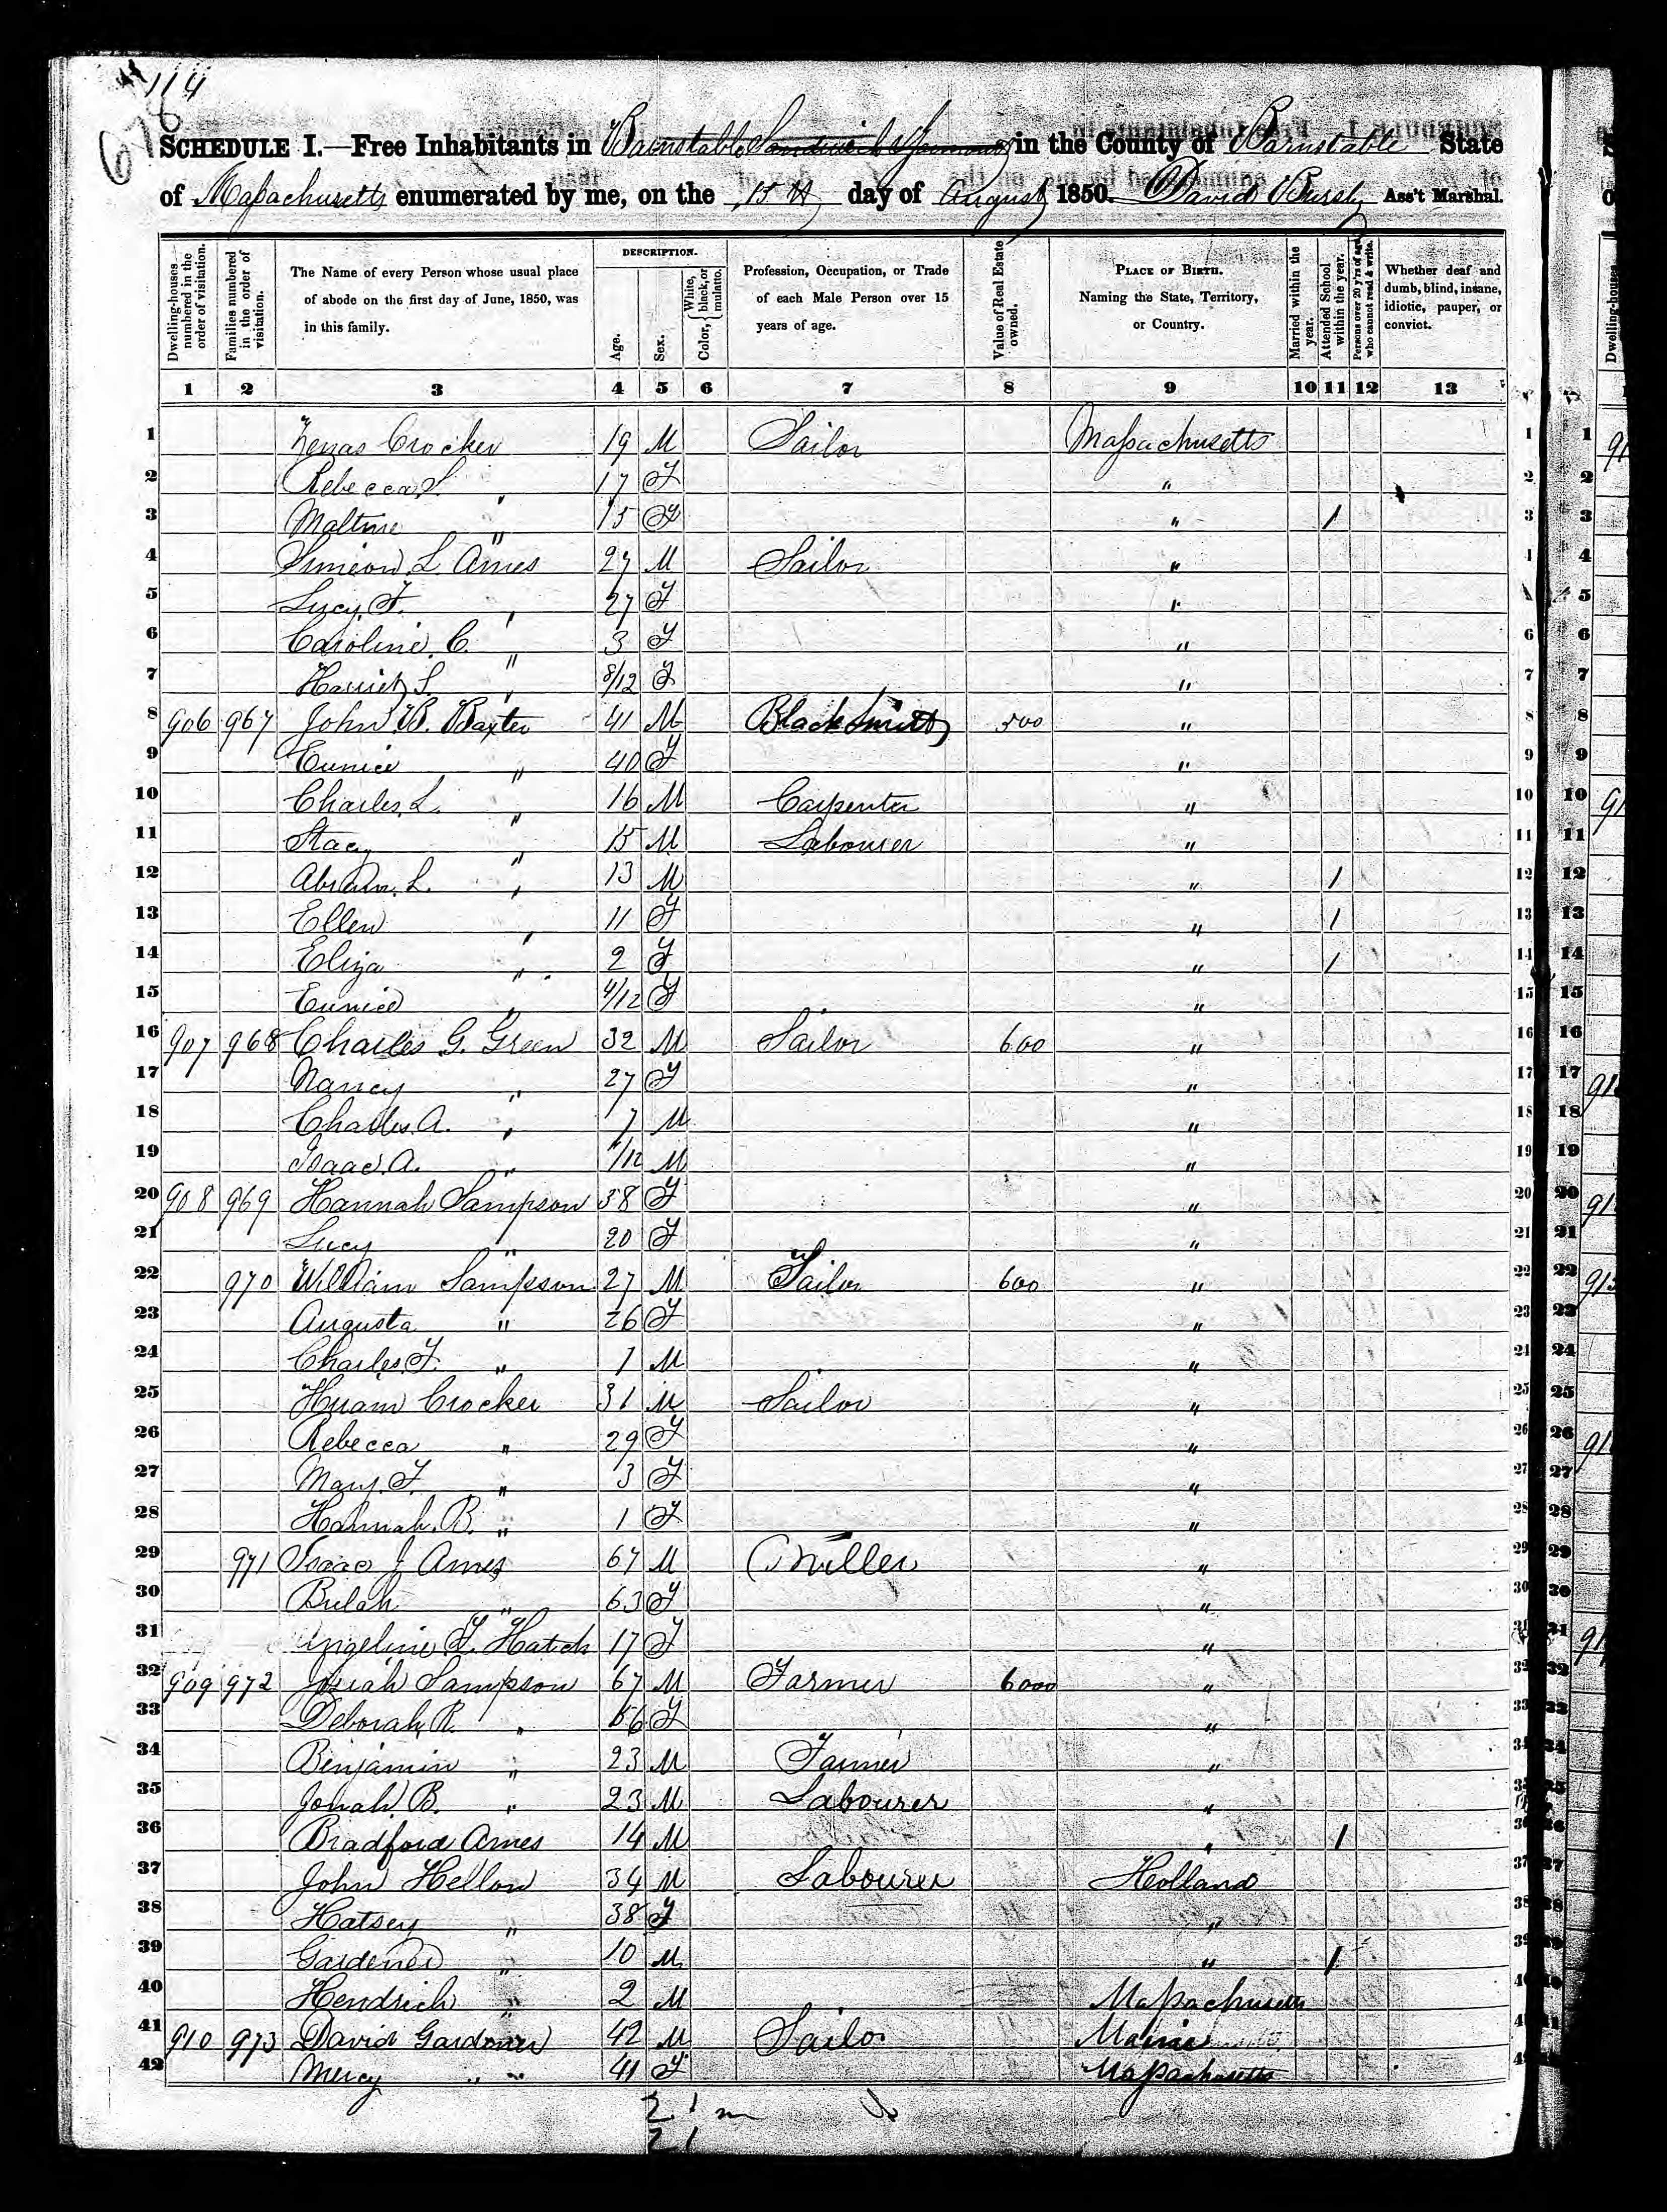 114
678
SCHEDULE I.—Free Inhabitants in Barnstable Sandwich & Yarmouth in the County of Barnstable State
of Massachusetts enumerated by me, on the 15th day of August 1850. David Ass't Marshal.
Dwelling-houses numbered in the order of visitation.
Families numbered in the order of visitation.
The Name of every Person whose usual place of abode on the first day of June, 1850, was in this family.
DESCRIPTION.
Age.
Sex.
Color, { White, black, or mulatto.
Profession, Occupation, or Trade of each Male Person over 15 years of age.
Value of Real Estate owned.
PLACE OF BIRTH. Naming the State, Territory, or Country.
Married within the year.
Attended School within the year.
Persons over 20 y'rs of age who cannot read & write.
Whether deaf and dumb, blind, insane, idiotic, pauper, or convict.
1 2 3 4 5 6 7 8 9 10 11 12 13
1 Zenas Crocker 19 M Sailor Massachusetts 1
2 Rebecca S. " 17 F " 2
3 " 15 F " / 3
4 Simeon L. Ames 27 M Sailor " 4
5 Lucy F. " 27 F " 5
6 Caroline C. " 3 F " 6
7 Harriet S. " 8/12 F " 7
8 906 967 John B. Baxter 41 M Black Smith 500 " 8
9 Eunice " 40 F " 9
10 Charles L. " 16 M Carpenter " 10
11 Stacy " 15 M Labourer " 11
12 Abram L. " 13 M " / 12
13 Ellen " 11 F " / 13
14 Eliza " 2 F " / 14
15 Eunice " 4/12 F " 15
16 907 968 Charles G. Green 32 M Sailor 600 " 16
17 Nancy " 27 F " 17
18 Charles A. " 7 M " 18
19 Isaac A. " 1/12 M " 19
20 908 969 Hannah Sampson 38 F " 20
21 Lucy " 20 F " 21
22 970 William Sampson 27 M Sailor 600 " 22
23 Augusta " 26 F " 23
24 Charles F. " 1 M " 24
25 Hiram Crocker 31 M Sailor " 25
26 Rebecca " 29 F " 26
27 Mary F. " 3 F " 27
28 Hannah B. " 1 F " 28
29 971 Isaac J Ames 67 M Miller " 29
30 Bulah " 63 F " 30
31 Angeline F. Hatch 17 F " 31
32 909 972 Josiah Sampson 67 M Farmer 6000 " 32
33 Deborah R. " 56 F " 33
34 Benjamin " 23 M Farmer " 34
35 Jonah B. " 23 M Labourer " 35
36 Bradford Ames 14 M " / 36
37 John Hellon 34 M Labourer Holland 37
38 Hatsey " 38 F " 38
39 Gardener " 10 M " / 39
40 Hendrich " 2 M Massachusetts 40
41 910 973 David Gardner 42 M Sailor Maine 41
42 Mercy " " 41 F Massachusetts 42
21 m
21